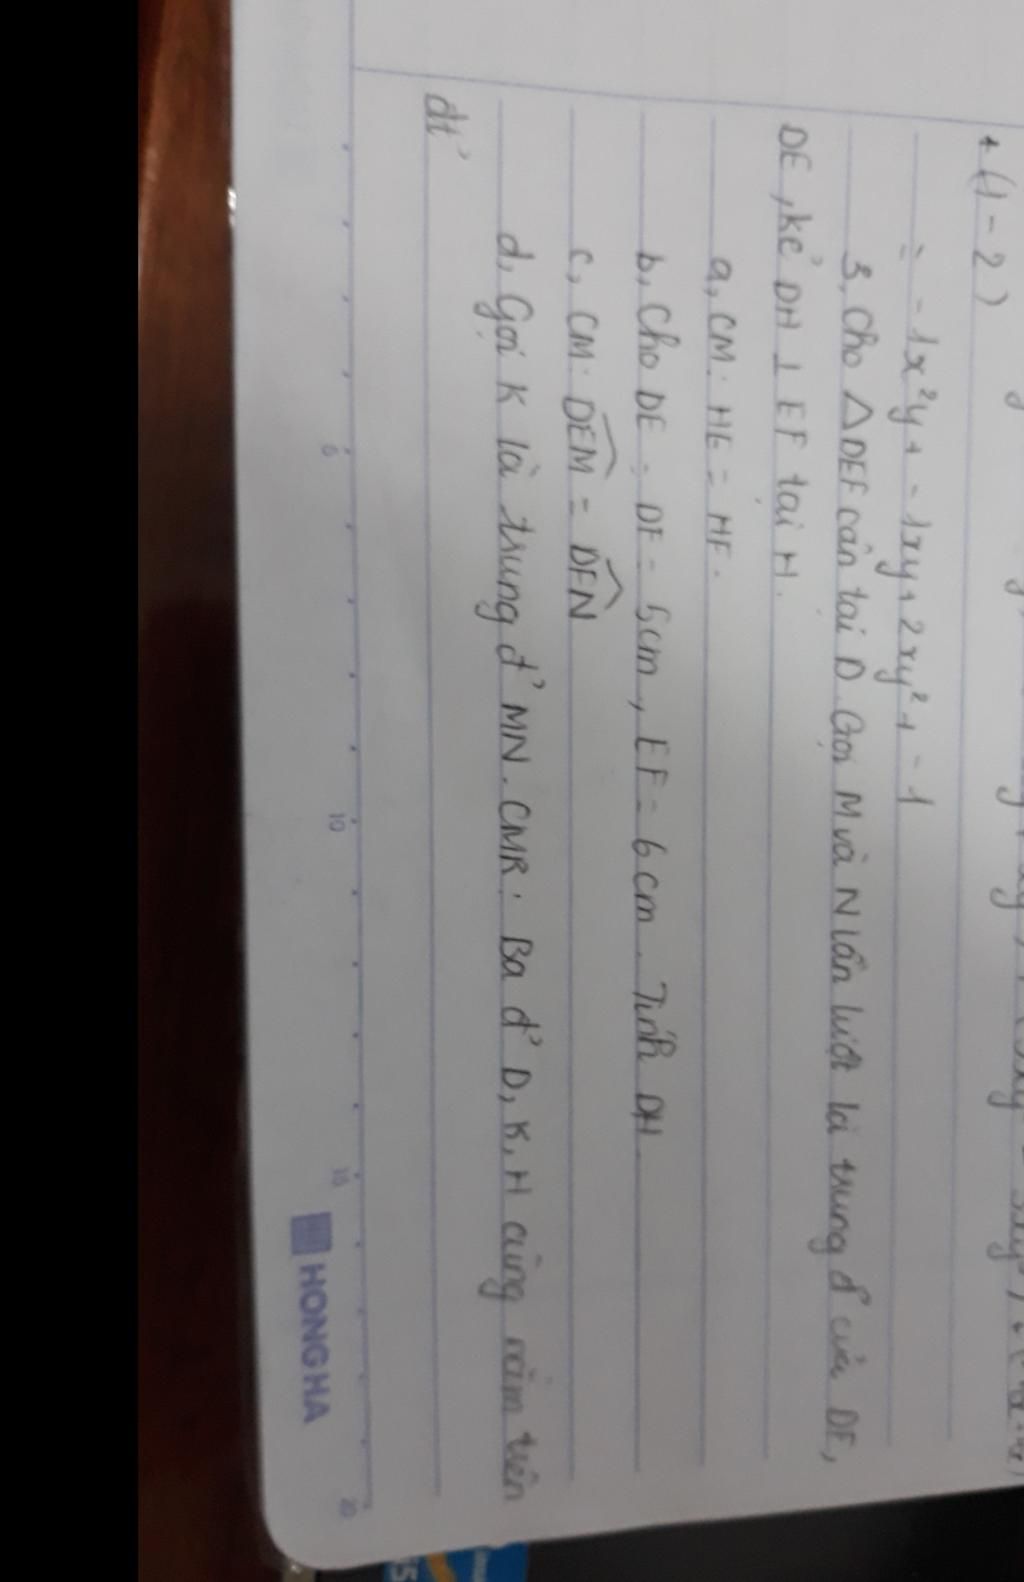 + (1 - 2)
= -1x²y + -1xy + 2xy² + -1
3, Cho △DEF cân tại D. Gọi M và N lần lượt là trung đ' của DF,
DE, kẻ DH ⊥ EF tại H.
a, CM: HE = HF.
b, Cho DE = DF = 5cm, EF = 6cm. Tính DH
c, CM: DEM = DFN
d, Gọi K là trung đ' MN. CMR: Ba đ' D, K, H cùng nằm trên
đt'
5
10
15
20
HONG HA